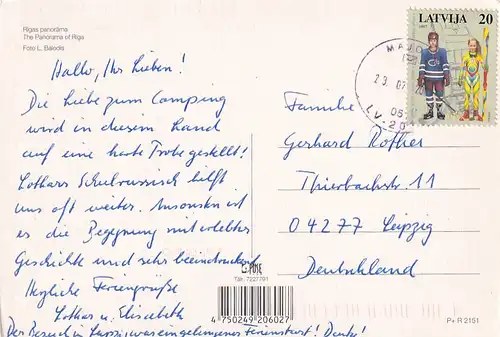 Rigas panorāma
The Panorama of Riga
Foto L. Balodis
Hallo, Ihr Lieben!
Die Liebe zum Camping
wird in diesem Land
auf eine harte Probe gestellt!
Lothars Schulrussisch hilft
uns oft weiter. Ansonsten ist
es die Begegnung mit erlebter
Geschichte und sehr beeindruckend.
Herzliche Feriengrüße
Lothar u. Elisabeth
Der Besuch in Leipzig war ein gelungener Ferienstart! Danke!
LATVIJA 20
1997
Familie
Gerhard Rother
Thierbachstr. 11
04277 Leipzig
Deutschland
LV-20
Tālr. 7227791
4 750249 206027
P+R 2151